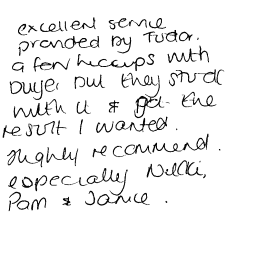 excellent service
provided by Tudor.
a few hiccups with
buyer but they stuck
with it & got the
result I wanted.
Highly recommend.
especially Nikki,
Pam & Janice.